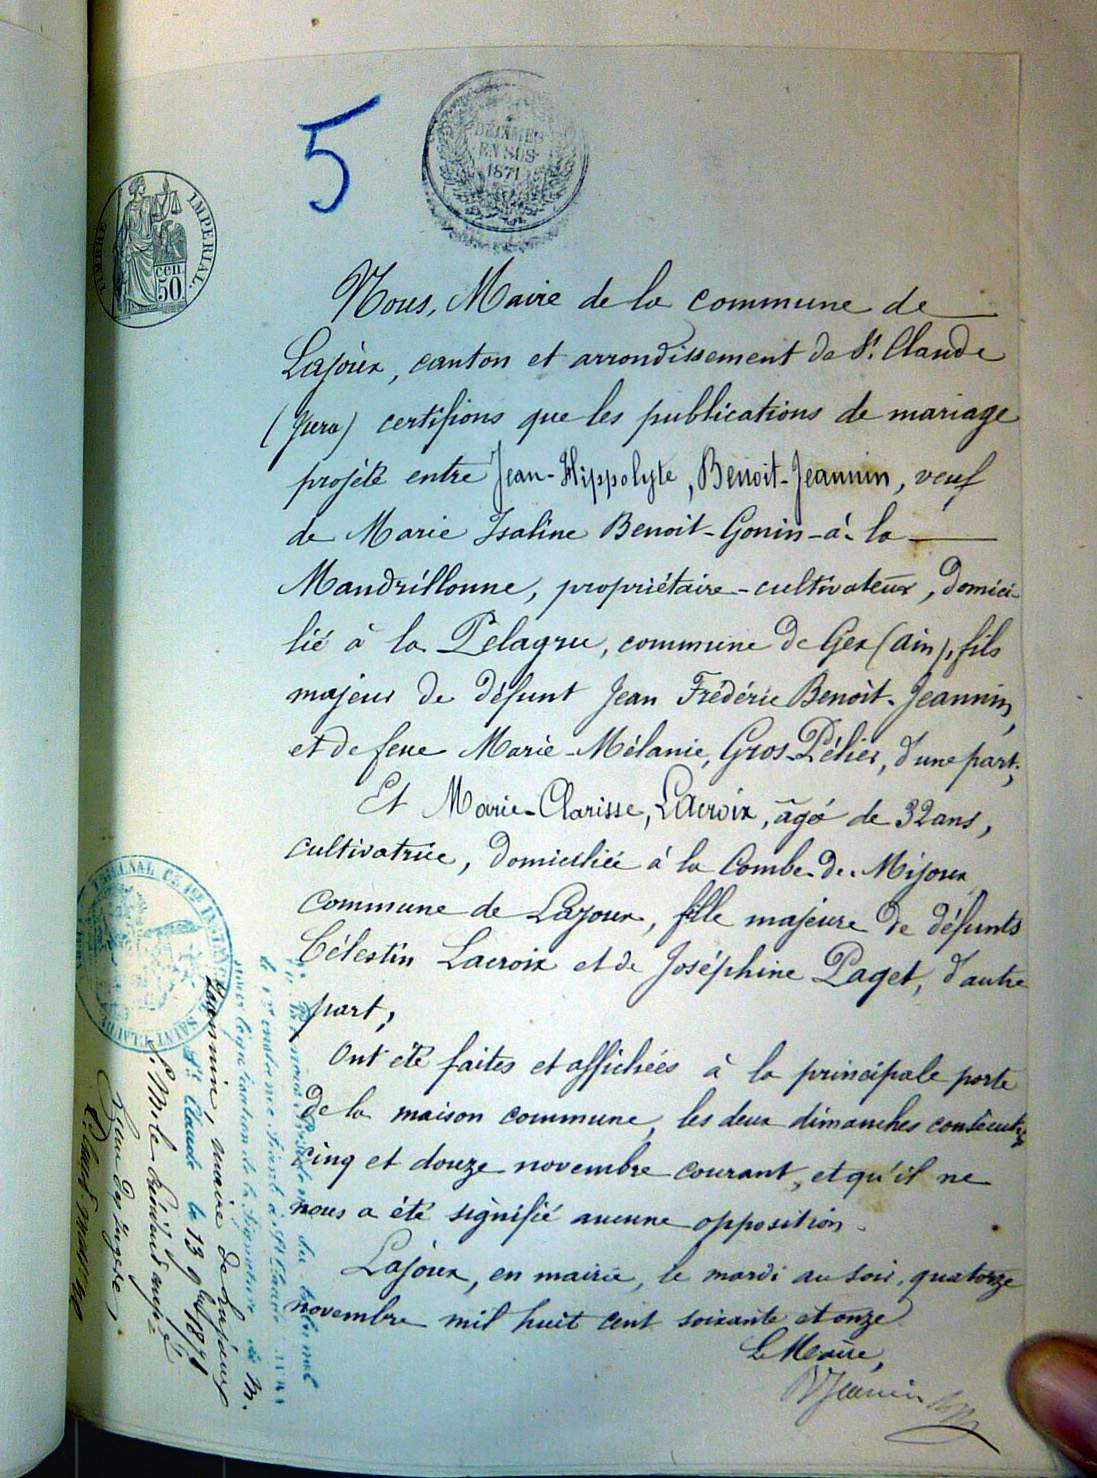 5
DÉCIMES
EN SUS
1871
TIMBRE IMPERIAL.
cen
50
Nous, Maire de la commune de
Lajoux, canton et arrondissement de St. Claude
(Jura) certifions que les publications de mariage
projeté entre Jean-Hippolyte, Benoit-Jeannin, veuf
de Marie Isaline Benoit-Gonin-à-la
Mandrillonne, propriétaire-cultivateur, domici-
lié à la Pelagru, commune de Gex (Ain), fils
majeur de défunt Jean Frédéric Benoit-Jeannin,
et de feue Marie-Mélanie, Gros-Pélier, d'une part;
Et Marie-Clarisse, Lacroix, âgé de 32 ans,
cultivatrice, domiciliée à la Combe-de-Mijoux
commune de Lajoux, fille majeure de défunts
Célestin Lacroix et de Joséphine Paget, d'autre
part,
Ont été faites et affichées à la principale porte
de la maison commune, les deux dimanches consécutifs
cinq et douze novembre courant, et qu'il ne
nous a été signifié aucune opposition.
Lajoux, en mairie, le mardi au soir, quatorze
novembre mil huit cent soixante et onze
Le Maire,
BJeannin
TRIBUNAL DE 1ère INSTANCE
SAINT CLAUDE
Vu par nous Président du tribunal
de 1ère instance séant à St Claude
pour légalisation de la signature de M.
Jeannin, maire de Lajoux
St Claude le 13 9bre 1871